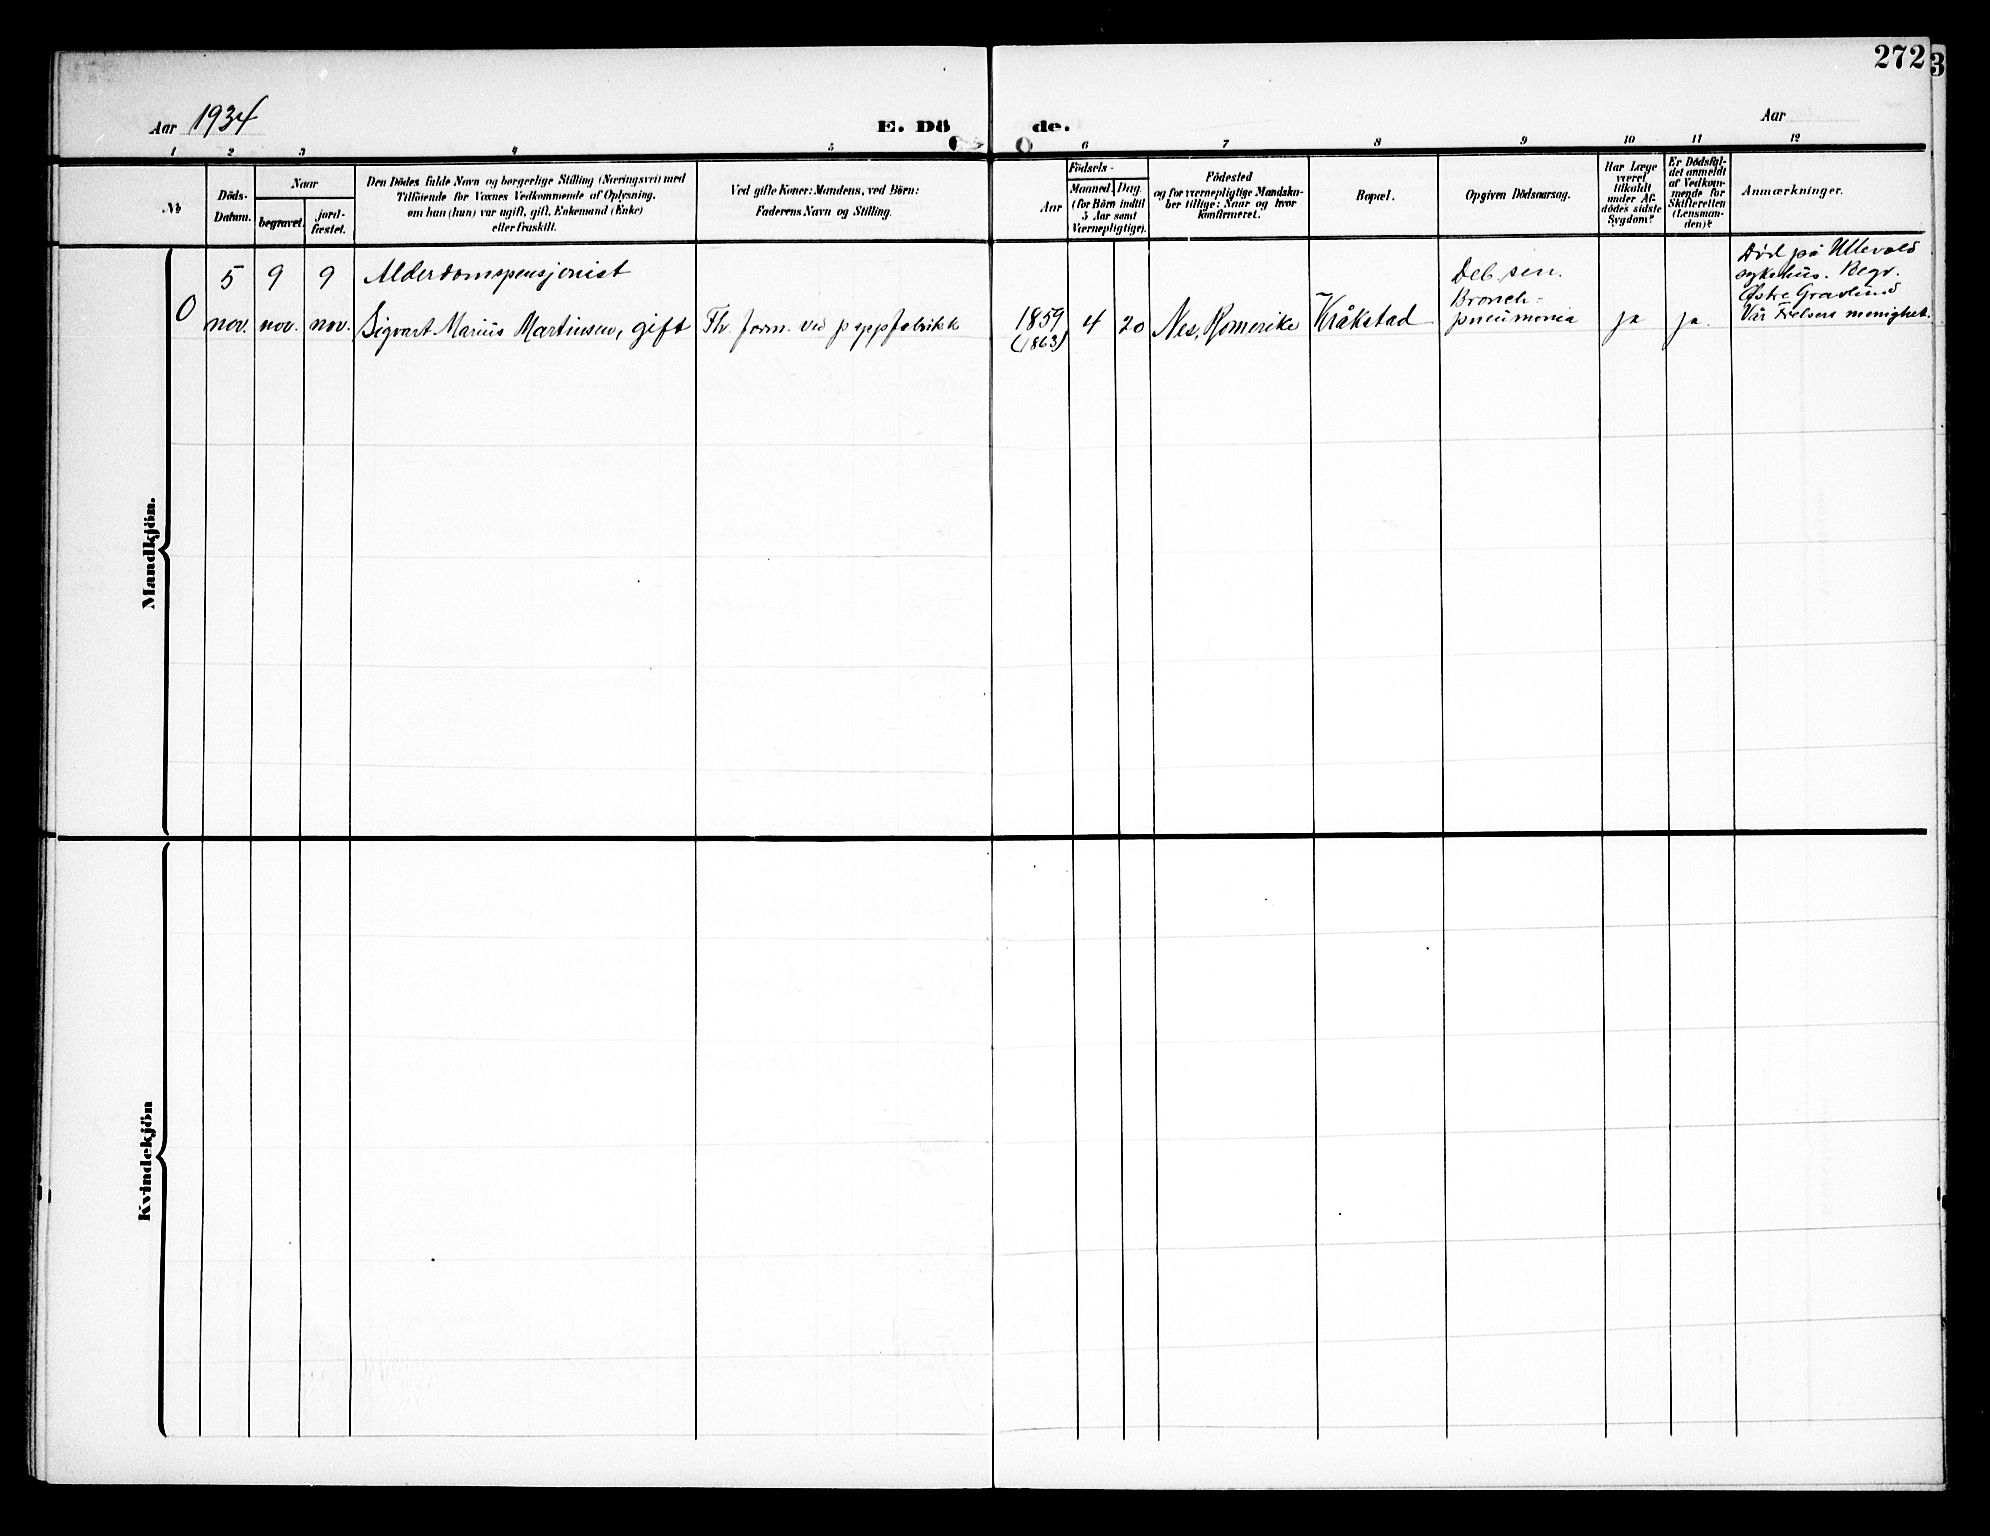 272
3
Aar 1934
E. Dö de.
Aar
1 2 3 4 5 6 7 8 9 10 11 12
№
Döds-
Datum.
Naar
begravet.
jord-
fæstet.
Den Dödes fulde Navn og borgerlige Stilling (Næringsvei) med
Tilföiende for Voxnes Vedkommende af Oplysning,
om han (hun) var ugift, gift, Enkemand (Enke)
eller fraskilt.
Ved gifte Koner: Mandens, ved Börn:
Faderens Navn og Stilling.
Födsels-
Aar
Maaned
Dag.
(for Börn indtil
5 Aar samt
Værnepligtige).
Födested
og for værnepligtige Mandska-
ber tillige: Naar og hvor
konfirmeret.
Bopæl.
Opgiven Dödsaarsag.
Har Læge
været
tilkaldt
under Af-
dödes sidste
Sygdom?
Er Dödsfal-
det anmeldt
af Vedkom-
mende for
Skifteretten
(Lensman-
den)?
Anmærkninger.
Mandkjön.
0
5 nov.
9 nov.
9 nov.
Alderdomspensjonist
Sigvart Marius Martinsen, gift
Th. form. ved pappfabrikk
1859
(1863)
4
20
Nes, Romerike
Kråkstad
Deb. sen.
Bronch-
pneumonia
ja
ja.
Död på Ullevold
sykehus. Begr.
Østre Gravlund
Vår Frelsers menighet.
Kvindekjön